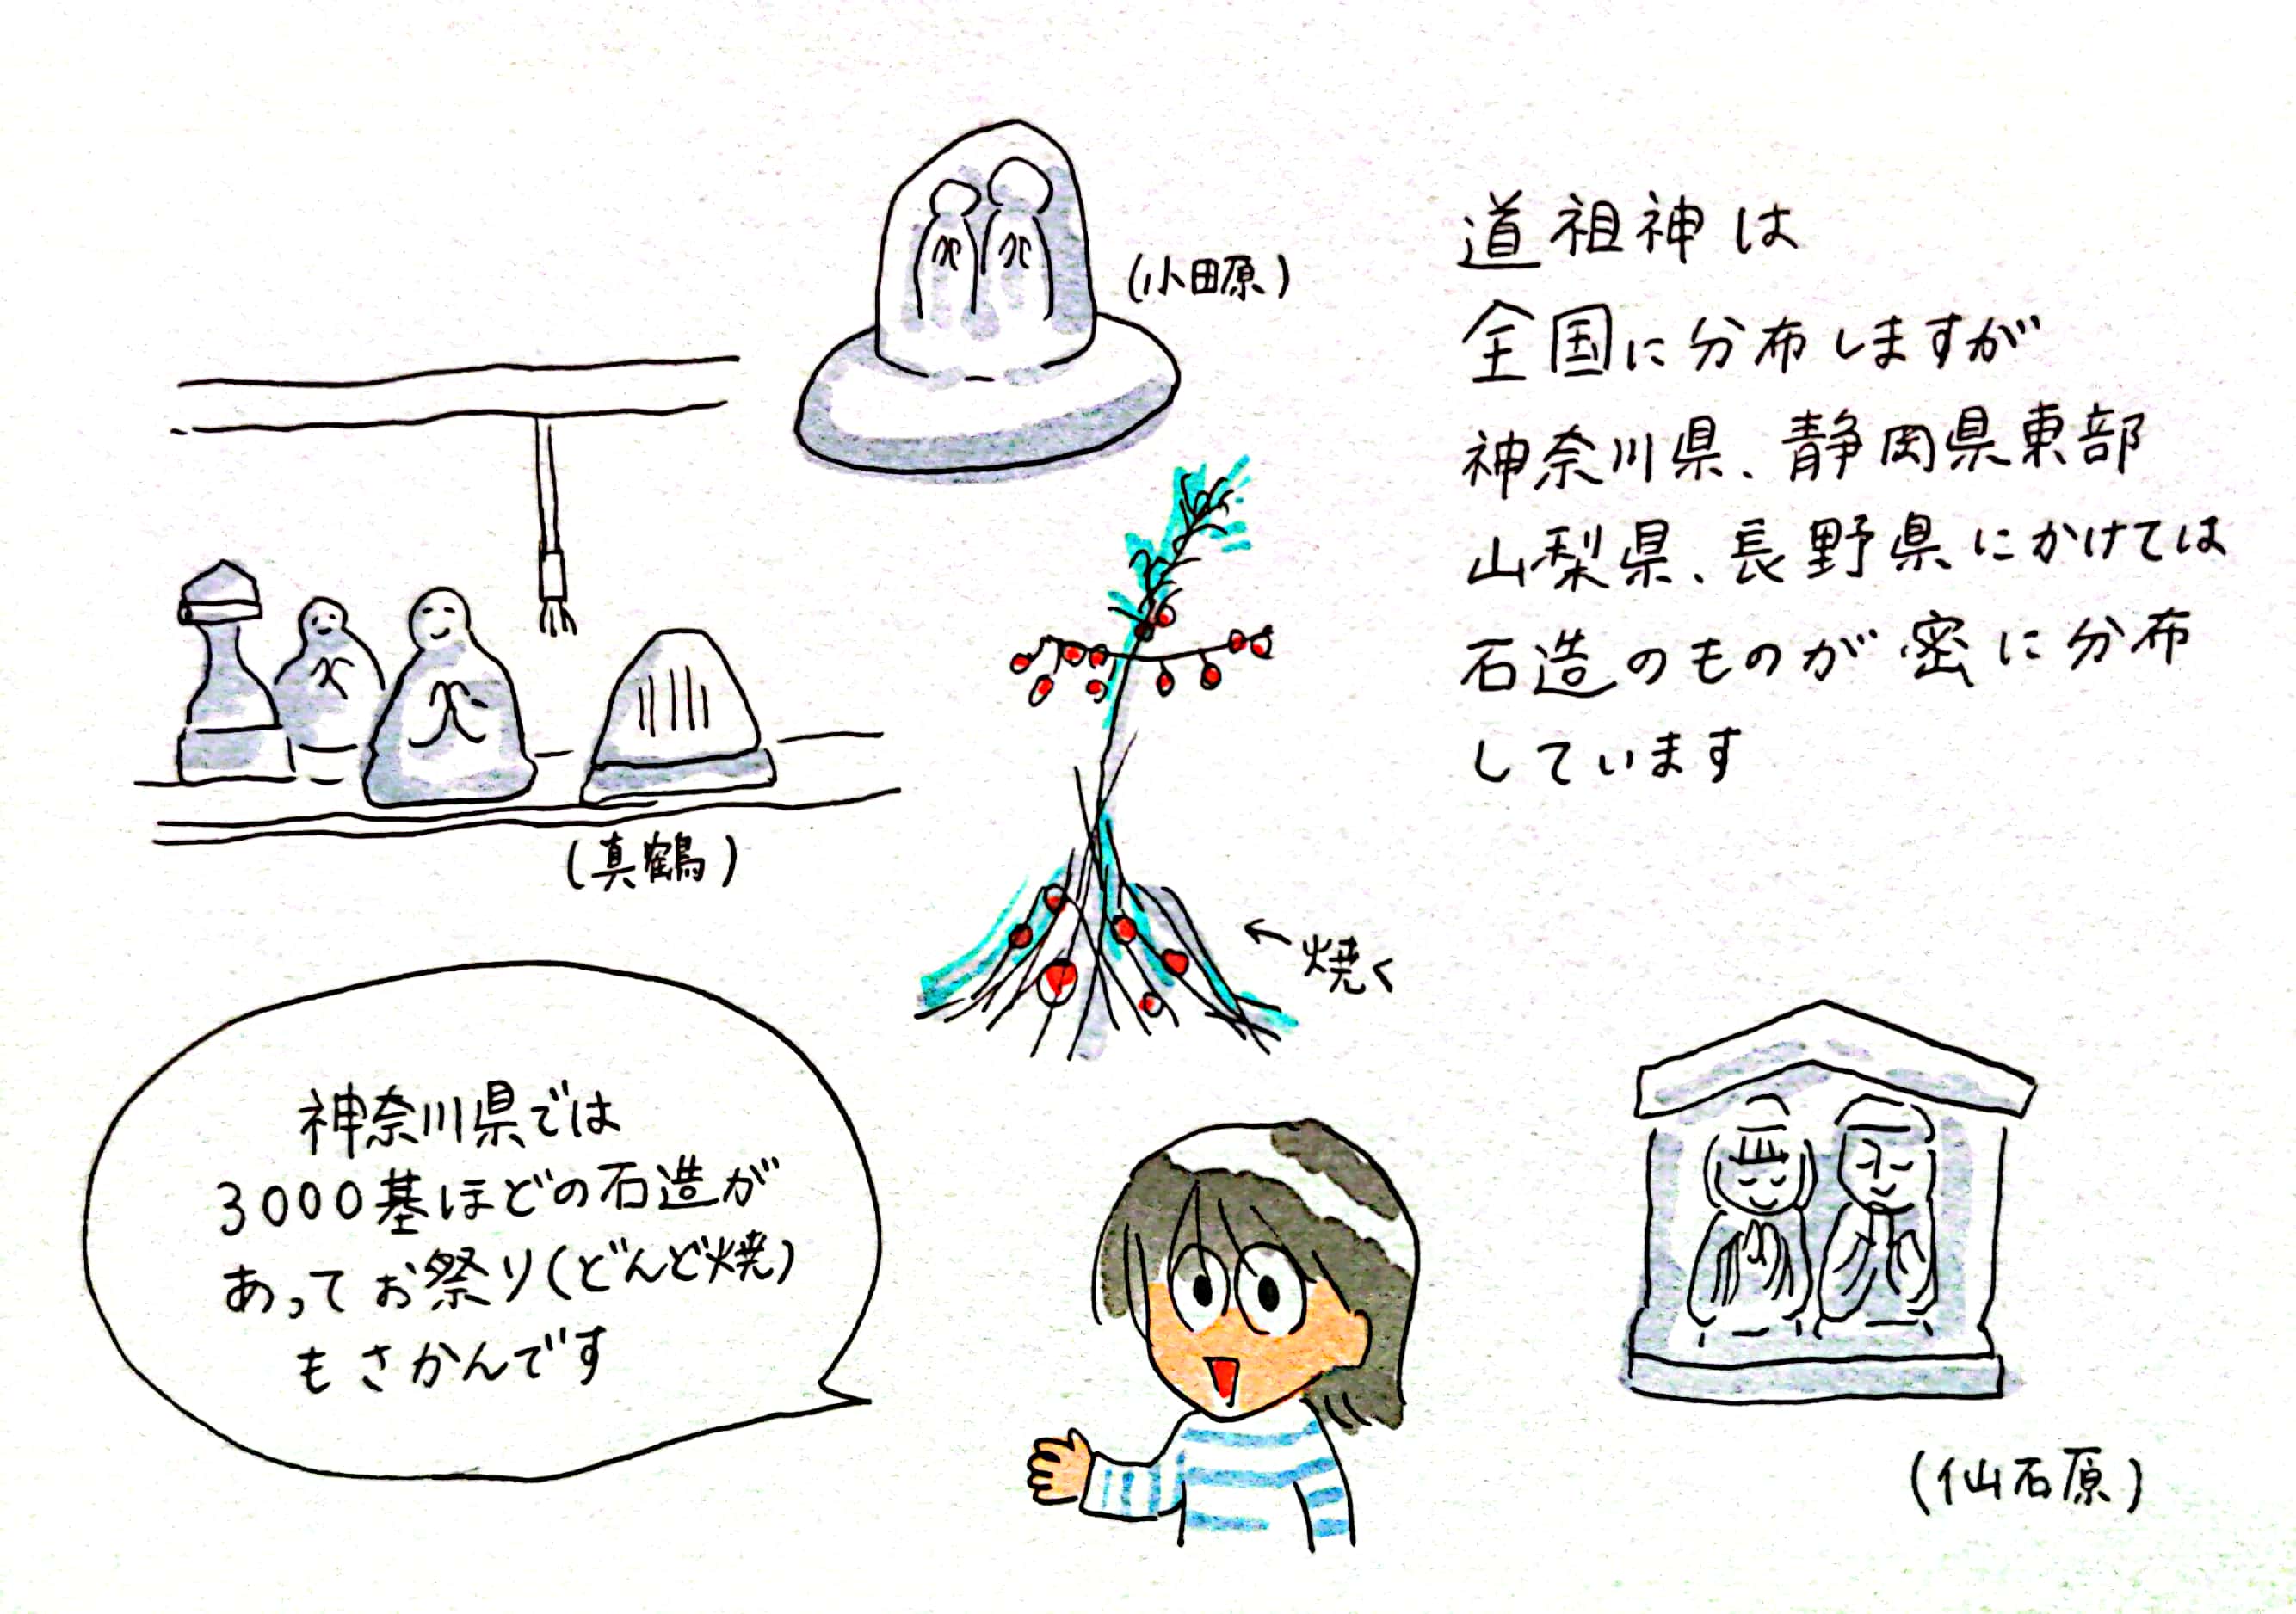 道祖神は
全国に分布しますが
神奈川県、静岡県東部
山梨県、長野県にかけては
石造のものが密に分布
しています
(小田原)
(真鶴)
←焼く
神奈川県では
3000基ほどの石造が
あってお祭り(どんど焼)
もさかんです
(仙石原)